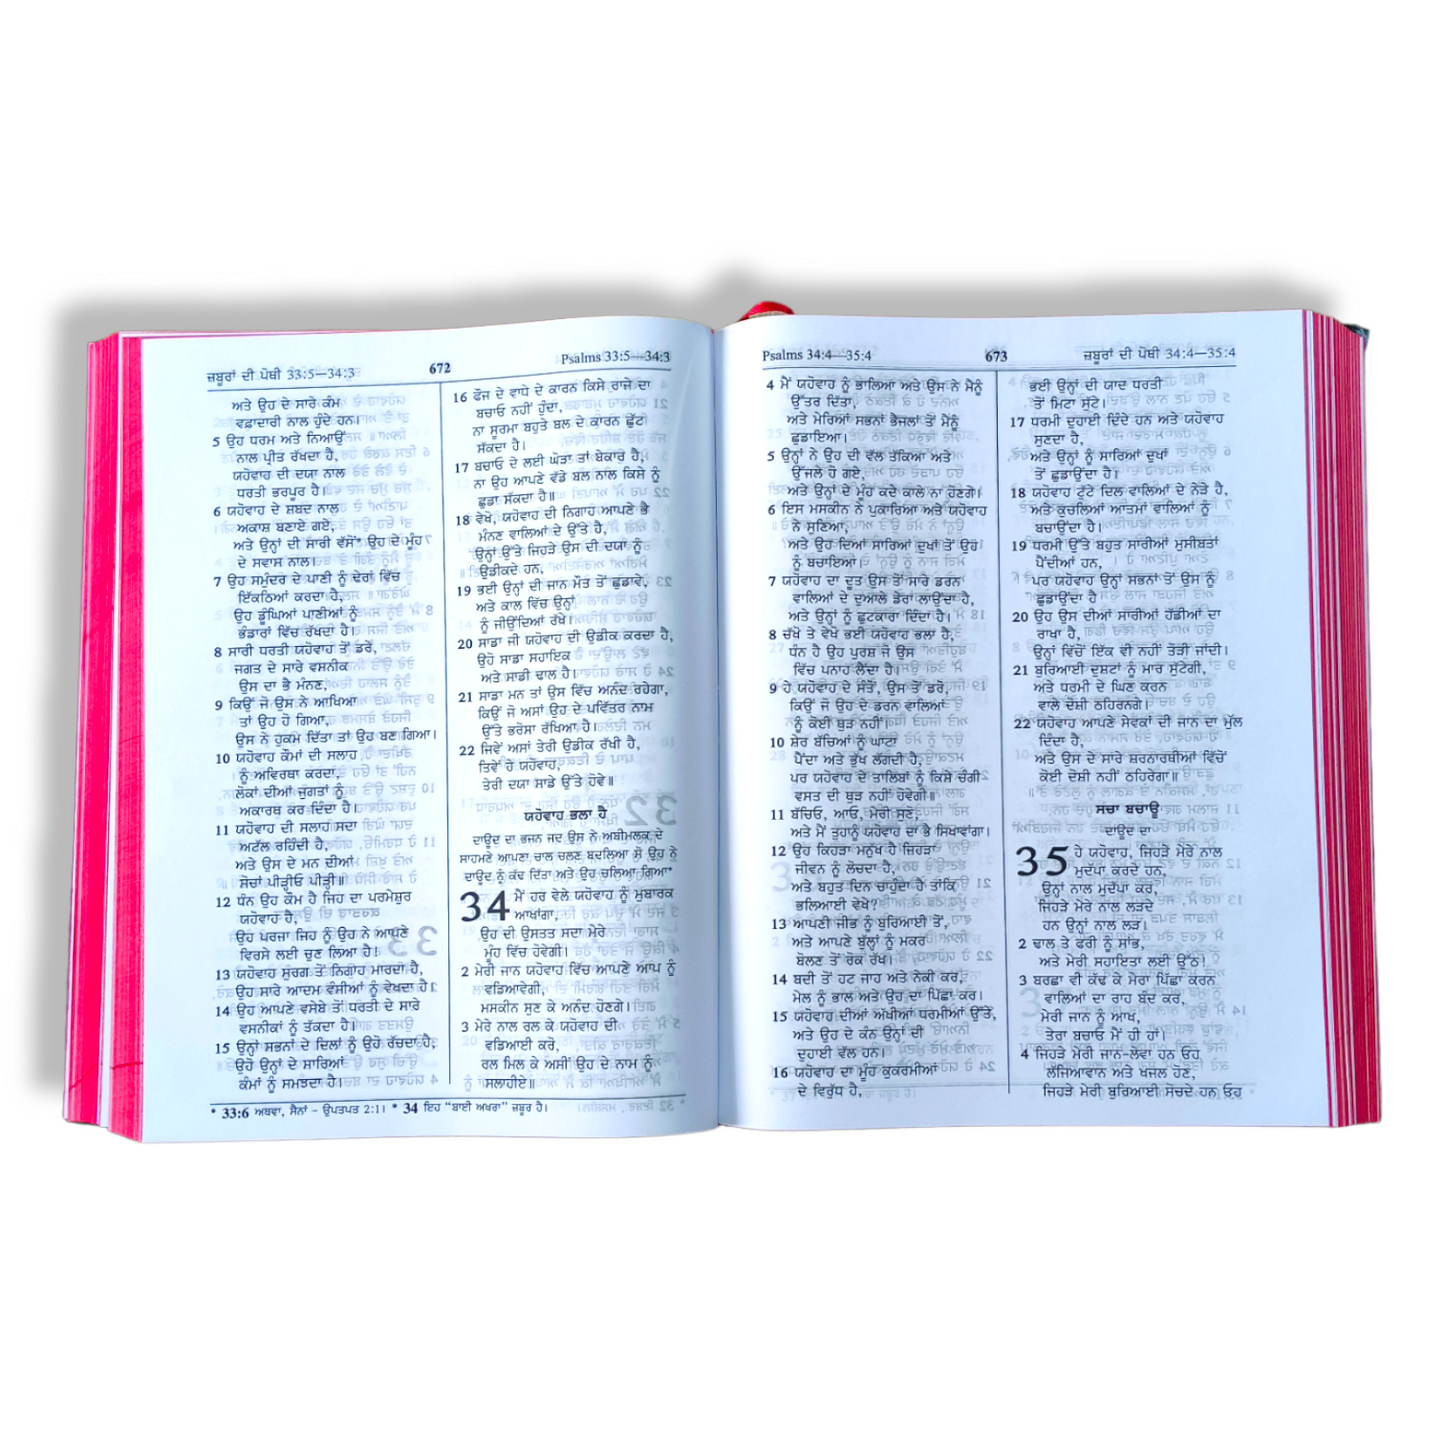 ਜ਼ਬੂਰਾਂ ਦੀ ਪੋਥੀ 33:5—34:3
672
Psalms 33:5—34:3
ਅਤੇ ਉਹ ਦੇ ਸਾਰੇ ਕੰਮ
ਵਫ਼ਾਦਾਰੀ ਨਾਲ ਹੁੰਦੇ ਹਨ।
5 ਉਹ ਧਰਮ ਅਤੇ ਨਿਆਉਂ
ਨਾਲ ਪ੍ਰੀਤ ਰੱਖਦਾ ਹੈ,
ਯਹੋਵਾਹ ਦੀ ਦਯਾ ਨਾਲ
ਧਰਤੀ ਭਰਪੂਰ ਹੈ।
6 ਯਹੋਵਾਹ ਦੇ ਸ਼ਬਦ ਨਾਲ
ਅਕਾਸ਼ ਬਣਾਏ ਗਏ,
ਅਤੇ ਉਨ੍ਹਾਂ ਦੀ ਸਾਰੀ ਵੱਸੋਂ* ਉਹ ਦੇ ਮੂੰਹ
ਦੇ ਸਵਾਸ ਨਾਲ।
7 ਉਹ ਸਮੁੰਦਰ ਦੇ ਪਾਣੀ ਨੂੰ ਢੇਰਾਂ ਵਿੱਚ
ਇੱਕਠਿਆਂ ਕਰਦਾ ਹੈ,
ਉਹ ਡੂੰਘਿਆਂ ਪਾਣੀਆਂ ਨੂੰ
ਭੰਡਾਰਾਂ ਵਿੱਚ ਰੱਖਦਾ ਹੈ।
8 ਸਾਰੀ ਧਰਤੀ ਯਹੋਵਾਹ ਤੋਂ ਡਰੇ,
ਜਗਤ ਦੇ ਸਾਰੇ ਵਸਨੀਕ
ਉਸ ਦਾ ਭੈ ਮੰਨਣ,
9 ਕਿਉਂ ਜੋ ਉਸ ਨੇ ਆਖਿਆ
ਤਾਂ ਉਹ ਹੋ ਗਿਆ,
ਉਸ ਨੇ ਹੁਕਮ ਦਿੱਤਾ ਤਾਂ ਉਹ ਬਣ ਗਿਆ।
10 ਯਹੋਵਾਹ ਕੌਮਾਂ ਦੀ ਸਲਾਹ
ਨੂੰ ਅਵਿਰਥਾ ਕਰਦਾ,
ਲੋਕਾਂ ਦੀਆਂ ਜੁਗਤਾਂ ਨੂੰ
ਅਕਾਰਥ ਕਰ ਦਿੰਦਾ ਹੈ।
11 ਯਹੋਵਾਹ ਦੀ ਸਲਾਹ ਸਦਾ
ਅਟੱਲ ਰਹਿੰਦੀ ਹੈ,
ਅਤੇ ਉਸ ਦੇ ਮਨ ਦੀਆਂ
ਸੋਚਾਂ ਪੀੜ੍ਹੀਓ ਪੀੜ੍ਹੀ॥
12 ਧੰਨ ਉਹ ਕੌਮ ਹੈ ਜਿਹ ਦਾ ਪਰਮੇਸ਼ੁਰ
ਯਹੋਵਾਹ ਹੈ,
ਉਹ ਪਰਜਾ ਜਿਹ ਨੂੰ ਉਹ ਨੇ ਆਪਣੇ
ਵਿਰਸੇ ਲਈ ਚੁਣ ਲਿਆ ਹੈ।
13 ਯਹੋਵਾਹ ਸੁਰਗ ਤੋਂ ਨਿਗਾਹ ਮਾਰਦਾ ਹੈ,
ਉਹ ਸਾਰੇ ਆਦਮ ਵੰਸੀਆਂ ਨੂੰ ਵੇਖਦਾ ਹੈ।
14 ਉਹ ਆਪਣੇ ਵਸੇਬੇ ਤੋਂ ਧਰਤੀ ਦੇ ਸਾਰੇ
ਵਸਨੀਕਾਂ ਨੂੰ ਤੱਕਦਾ ਹੈ।
15 ਉਨ੍ਹਾਂ ਸਭਨਾਂ ਦੇ ਦਿਲਾਂ ਨੂੰ ਉਹੋ ਰੱਚਦਾ ਹੈ,
ਉਹੋ ਉਨ੍ਹਾਂ ਦੇ ਸਾਰਿਆਂ
ਕੰਮਾਂ ਨੂੰ ਸਮਝਦਾ ਹੈ।
16 ਫੌਜ ਦੇ ਵਾਧੇ ਦੇ ਕਾਰਨ ਕਿਸੇ ਰਾਜੇ ਦਾ
ਬਚਾਓ ਨਹੀਂ ਹੁੰਦਾ,
ਨਾ ਸੂਰਮਾ ਬਹੁਤੇ ਬਲ ਦੇ ਕਾਰਨ ਛੁੱਟੀ
ਸੱਕਦਾ ਹੈ।
17 ਬਚਾਓ ਦੇ ਲਈ ਘੋੜਾ ਤਾਂ ਬੇਕਾਰ ਹੈ,
ਨਾ ਉਹ ਆਪਣੇ ਵੱਡੇ ਬਲ ਨਾਲ ਕਿਸੇ ਨੂੰ
ਛੁਡਾ ਸੱਕਦਾ ਹੈ॥
18 ਵੇਖੋ, ਯਹੋਵਾਹ ਦੀ ਨਿਗਾਹ ਆਪਣੇ ਭੈ
ਮੰਨਣ ਵਾਲਿਆਂ ਦੇ ਉੱਤੇ ਹੈ,
ਉਨ੍ਹਾਂ ਉੱਤੇ ਜਿਹੜੇ ਉਸ ਦੀ ਦਯਾ ਨੂੰ
ਉਡੀਕਦੇ ਹਨ,
19 ਭਈ ਉਨ੍ਹਾਂ ਦੀ ਜਾਨ ਮੌਤ ਤੋਂ ਛੁਡਾਵੇ,
ਅਤੇ ਕਾਲ ਵਿੱਚ ਉਨ੍ਹਾਂ
ਨੂੰ ਜੀਉਂਦਿਆਂ ਰੱਖੇ।
20 ਸਾਡਾ ਜੀ ਯਹੋਵਾਹ ਦੀ ਉਡੀਕ ਕਰਦਾ ਹੈ,
ਉਹੋ ਸਾਡਾ ਸਹਾਇਕ
ਅਤੇ ਸਾਡੀ ਢਾਲ ਹੈ।
21 ਸਾਡਾ ਮਨ ਤਾਂ ਉਸ ਵਿੱਚ ਅਨੰਦ ਰਹੇਗਾ,
ਕਿਉਂ ਜੋ ਅਸਾਂ ਉਹ ਦੇ ਪਵਿੱਤਰ ਨਾਮ
ਉੱਤੇ ਭਰੋਸਾ ਰੱਖਿਆ ਹੈ।
22 ਜਿਵੇਂ ਅਸਾਂ ਤੇਰੀ ਉਡੀਕ ਰੱਖੀ ਹੈ,
ਤਿਵੇਂ ਹੇ ਯਹੋਵਾਹ,
ਤੇਰੀ ਦਯਾ ਸਾਡੇ ਉੱਤੇ ਹੋਵੇ॥
ਯਹੋਵਾਹ ਭਲਾ ਹੈ
ਦਾਊਦ ਦਾ ਭਜਨ ਜਦ ਉਸ ਨੇ ਅਬੀਮਲਕ ਦੇ
ਸਾਹਮਣੇ ਆਪਣਾ ਚਾਲ ਚਲਣ ਬਦਲਿਆ ਸੋ ਉਹ ਨੇ
ਦਾਊਦ ਨੂੰ ਕੱਢ ਦਿੱਤਾ ਅਤੇ ਉਹ ਚਲਿਆ ਗਿਆ*
34 ਮੈਂ ਹਰ ਵੇਲੇ ਯਹੋਵਾਹ ਨੂੰ ਮੁਬਾਰਕ
ਆਖਾਂਗਾ,
ਉਹ ਦੀ ਉਸਤਤ ਸਦਾ ਮੇਰੇ
ਮੂੰਹ ਵਿੱਚ ਹੋਵੇਗੀ।
2 ਮੇਰੀ ਜਾਨ ਯਹੋਵਾਹ ਵਿੱਚ ਆਪਣੇ ਆਪ ਨੂੰ
ਵਡਿਆਵੇਗੀ,
ਮਸਕੀਨ ਸੁਣ ਕੇ ਅਨੰਦ ਹੋਣਗੇ।
3 ਮੇਰੇ ਨਾਲ ਰਲ ਕੇ ਯਹੋਵਾਹ ਦੀ
ਵਡਿਆਈ ਕਰੋ,
ਰਲ ਮਿਲ ਕੇ ਅਸੀਂ ਉਹ ਦੇ ਨਾਮ ਨੂੰ
ਸਲਾਹੀਏ॥
* 33:6 ਅਥਵਾ, ਸੈਨਾਂ – ਉਪਤਪਤ 2:1। * 34 ਇਹ "ਬਾਈ ਅਖਰਾ" ਜ਼ਬੂਰ ਹੈ।
Psalms 34:4—35:4
673
ਜ਼ਬੂਰਾਂ ਦੀ ਪੋਥੀ 34:4—35:4
4 ਮੈਂ ਯਹੋਵਾਹ ਨੂੰ ਭਾਲਿਆ ਅਤੇ ਉਸ ਨੇ ਮੈਨੂੰ
ਉੱਤਰ ਦਿੱਤਾ,
ਅਤੇ ਮੇਰਿਆਂ ਸਭਨਾਂ ਭੈਜਲਾਂ ਤੋਂ ਮੈਨੂੰ
ਛੁਡਾਇਆ।
5 ਉਨ੍ਹਾਂ ਨੇ ਉਹ ਦੀ ਵੱਲ ਤੱਕਿਆ ਅਤੇ
ਉੱਜਲੇ ਹੋ ਗਏ,
ਅਤੇ ਉਨ੍ਹਾਂ ਦੇ ਮੂੰਹ ਕਦੇ ਕਾਲੇ ਨਾ ਹੋਣਗੇ।
6 ਇਸ ਮਸਕੀਨ ਨੇ ਪੁਕਾਰਿਆ ਅਤੇ ਯਹੋਵਾਹ
ਨੇ ਸੁਣਿਆ,
ਅਤੇ ਉਹ ਦਿਆਂ ਸਾਰਿਆਂ ਦੁਖਾਂ ਤੋਂ ਉਹ
ਨੂੰ ਬਚਾਇਆ।
7 ਯਹੋਵਾਹ ਦਾ ਦੂਤ ਉਸ ਤੋਂ ਸਾਰੇ ਡਰਨ
ਵਾਲਿਆਂ ਦੇ ਦੁਆਲੇ ਡੇਰਾ ਲਾਉਂਦਾ ਹੈ,
ਅਤੇ ਉਨ੍ਹਾਂ ਨੂੰ ਛੁਟਕਾਰਾ ਦਿੰਦਾ ਹੈ।
8 ਚੱਖੋ ਤੇ ਵੇਖੋ ਭਈ ਯਹੋਵਾਹ ਭਲਾ ਹੈ,
ਧੰਨ ਹੈ ਉਹ ਪੁਰਸ਼ ਜੋ ਉਸ
ਵਿੱਚ ਪਨਾਹ ਲੈਂਦਾ ਹੈ।
9 ਹੇ ਯਹੋਵਾਹ ਦੇ ਸੰਤੋ, ਉਸ ਤੋਂ ਡਰੋ,
ਕਿਉਂ ਜੋ ਉਹ ਦੇ ਡਰਨ ਵਾਲਿਆਂ
ਨੂੰ ਕੋਈ ਥੁੜ ਨਹੀਂ।
10 ਸ਼ੇਰ ਬੱਚਿਆਂ ਨੂੰ ਘਾਟਾ
ਪੈਂਦਾ ਅਤੇ ਭੁੱਖ ਲੱਗਦੀ ਹੈ,
ਪਰ ਯਹੋਵਾਹ ਦੇ ਤਾਲਿਬਾਂ ਨੂੰ ਕਿਸੇ ਚੰਗੀ
ਵਸਤ ਦੀ ਥੁੜ ਨਹੀਂ ਹੋਵੇਗੀ॥
11 ਬੱਚਿਓ, ਆਓ, ਮੇਰੀ ਸੁਣੋ,
ਅਤੇ ਮੈਂ ਤੁਹਾਨੂੰ ਯਹੋਵਾਹ ਦਾ ਭੈ ਸਿਖਾਵਾਂਗਾ।
12 ਉਹ ਕਿਹੜਾ ਮਨੁੱਖ ਹੈ ਜਿਹੜਾ
ਜੀਵਨ ਨੂੰ ਲੋਚਦਾ ਹੈ,
ਅਤੇ ਬਹੁਤ ਦਿਨ ਚਾਹੁੰਦਾ ਹੈ ਤਾਂਕਿ
ਭਲਿਆਈ ਵੇਖੇ?
13 ਆਪਣੀ ਜੀਭ ਨੂੰ ਬੁਰਿਆਈ ਤੋਂ,
ਅਤੇ ਆਪਣੇ ਬੁੱਲ੍ਹਾਂ ਨੂੰ ਮਕਰ
ਬੋਲਣ ਤੋਂ ਰੋਕ ਰੱਖ।
14 ਬਦੀ ਤੋਂ ਹਟ ਜਾਹ ਅਤੇ ਨੇਕੀ ਕਰ,
ਮੇਲ ਨੂੰ ਭਾਲ ਅਤੇ ਉਹ ਦਾ ਪਿੱਛਾ ਕਰ।
15 ਯਹੋਵਾਹ ਦੀਆਂ ਅੱਖੀਆਂ ਧਰਮੀਆਂ ਉੱਤੇ,
ਅਤੇ ਉਹ ਦੇ ਕੰਨ ਉਨ੍ਹਾਂ ਦੀ
ਦੁਹਾਈ ਵੱਲ ਹਨ।
16 ਯਹੋਵਾਹ ਦਾ ਮੂੰਹ ਕੁਕਰਮੀਆਂ
ਦੇ ਵਿਰੁੱਧ ਹੈ,
ਭਈ ਉਨ੍ਹਾਂ ਦੀ ਯਾਦ ਧਰਤੀ
ਤੋਂ ਮਿਟਾ ਸੁੱਟੇ।
17 ਧਰਮੀ ਦੁਹਾਈ ਦਿੰਦੇ ਹਨ ਅਤੇ ਯਹੋਵਾਹ
ਸੁਣਦਾ ਹੈ,
ਅਤੇ ਉਨ੍ਹਾਂ ਨੂੰ ਸਾਰਿਆਂ ਦੁਖਾਂ
ਤੋਂ ਛੁਡਾਉਂਦਾ ਹੈ।
18 ਯਹੋਵਾਹ ਟੁੱਟੇ ਦਿਲ ਵਾਲਿਆਂ ਦੇ ਨੇੜੇ ਹੈ,
ਅਤੇ ਕੁਚਲਿਆਂ ਆਤਮਾਂ ਵਾਲਿਆਂ ਨੂੰ
ਬਚਾਉਂਦਾ ਹੈ।
19 ਧਰਮੀ ਉੱਤੇ ਬਹੁਤ ਸਾਰੀਆਂ ਮੁਸੀਬਤਾਂ
ਪੈਂਦੀਆਂ ਹਨ,
ਪਰ ਯਹੋਵਾਹ ਉਨ੍ਹਾਂ ਸਭਨਾਂ ਤੋਂ ਉਸ ਨੂੰ
ਛੁਡਾਉਂਦਾ ਹੈ
20 ਉਹ ਉਸ ਦੀਆਂ ਸਾਰੀਆਂ ਹੱਡੀਆਂ ਦਾ
ਰਾਖਾ ਹੈ,
ਉਨ੍ਹਾਂ ਵਿੱਚੋਂ ਇੱਕ ਵੀ ਨਹੀਂ ਤੋੜੀ ਜਾਂਦੀ।
21 ਬੁਰਿਆਈ ਦੁਸ਼ਟਾਂ ਨੂੰ ਮਾਰ ਸੁੱਟੇਗੀ,
ਅਤੇ ਧਰਮੀ ਦੇ ਘਿਣ ਕਰਨ
ਵਾਲੇ ਦੋਸ਼ੀ ਠਹਿਰਨਗੇ।
22 ਯਹੋਵਾਹ ਆਪਣੇ ਸੇਵਕਾਂ ਦੀ ਜਾਨ ਦਾ ਮੁੱਲ
ਦਿੰਦਾ ਹੈ,
ਅਤੇ ਉਸ ਦੇ ਸਾਰੇ ਸ਼ਰਨਾਰਥੀਆਂ ਵਿੱਚੋਂ
ਕੋਈ ਦੋਸ਼ੀ ਨਹੀਂ ਠਹਿਰੇਗਾ॥
ਸਚਾ ਬਚਾਊ
ਦਾਊਦ ਦਾ
35 ਹੇ ਯਹੋਵਾਹ, ਜਿਹੜੇ ਮੇਰੇ ਨਾਲ
ਮੁਦੱਪਾ ਕਰਦੇ ਹਨ,
ਉਨ੍ਹਾਂ ਨਾਲ ਮੁਦੱਪਾ ਕਰ,
ਜਿਹੜੇ ਮੇਰੇ ਨਾਲ ਲੜਦੇ
ਹਨ ਉਨ੍ਹਾਂ ਨਾਲ ਲੜ।
2 ਢਾਲ ਤੇ ਫਰੀ ਨੂੰ ਸਾਂਭ,
ਅਤੇ ਮੇਰੀ ਸਹਾਇਤਾ ਲਈ ਉੱਠ।
3 ਬਰਛਾ ਵੀ ਕੱਢ ਕੇ ਮੇਰਾ ਪਿੱਛਾ ਕਰਨ
ਵਾਲਿਆਂ ਦਾ ਰਾਹ ਬੰਦ ਕਰ,
ਮੇਰੀ ਜਾਨ ਨੂੰ ਆਖ,
ਤੇਰਾ ਬਚਾਓ ਮੈਂ ਹੀ ਹਾਂ।
4 ਜਿਹੜੇ ਮੇਰੀ ਜਾਨ-ਲੇਵਾ ਹਨ ਓਹ
ਲੱਜਿਆਵਾਨ ਅਤੇ ਖਜਲ ਹੋਣ,
ਜਿਹੜੇ ਮੇਰੀ ਬੁਰਿਆਈ ਸੋਚਦੇ ਹਨ ਓਹ